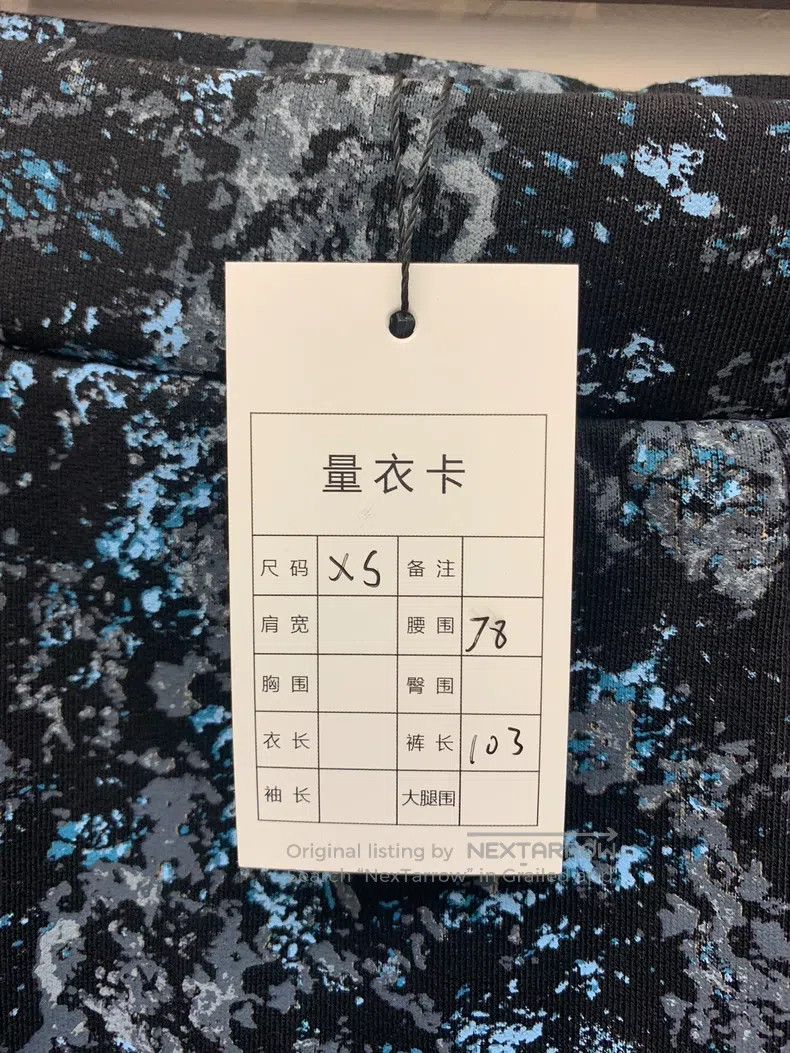 量衣卡
尺码 XS 备注
肩宽 腰围 78
胸围 臀围
衣长 裤长 103
袖长 大腿围
Original listing by NEXTARROW
Search "NexTarrow" in Grailed and